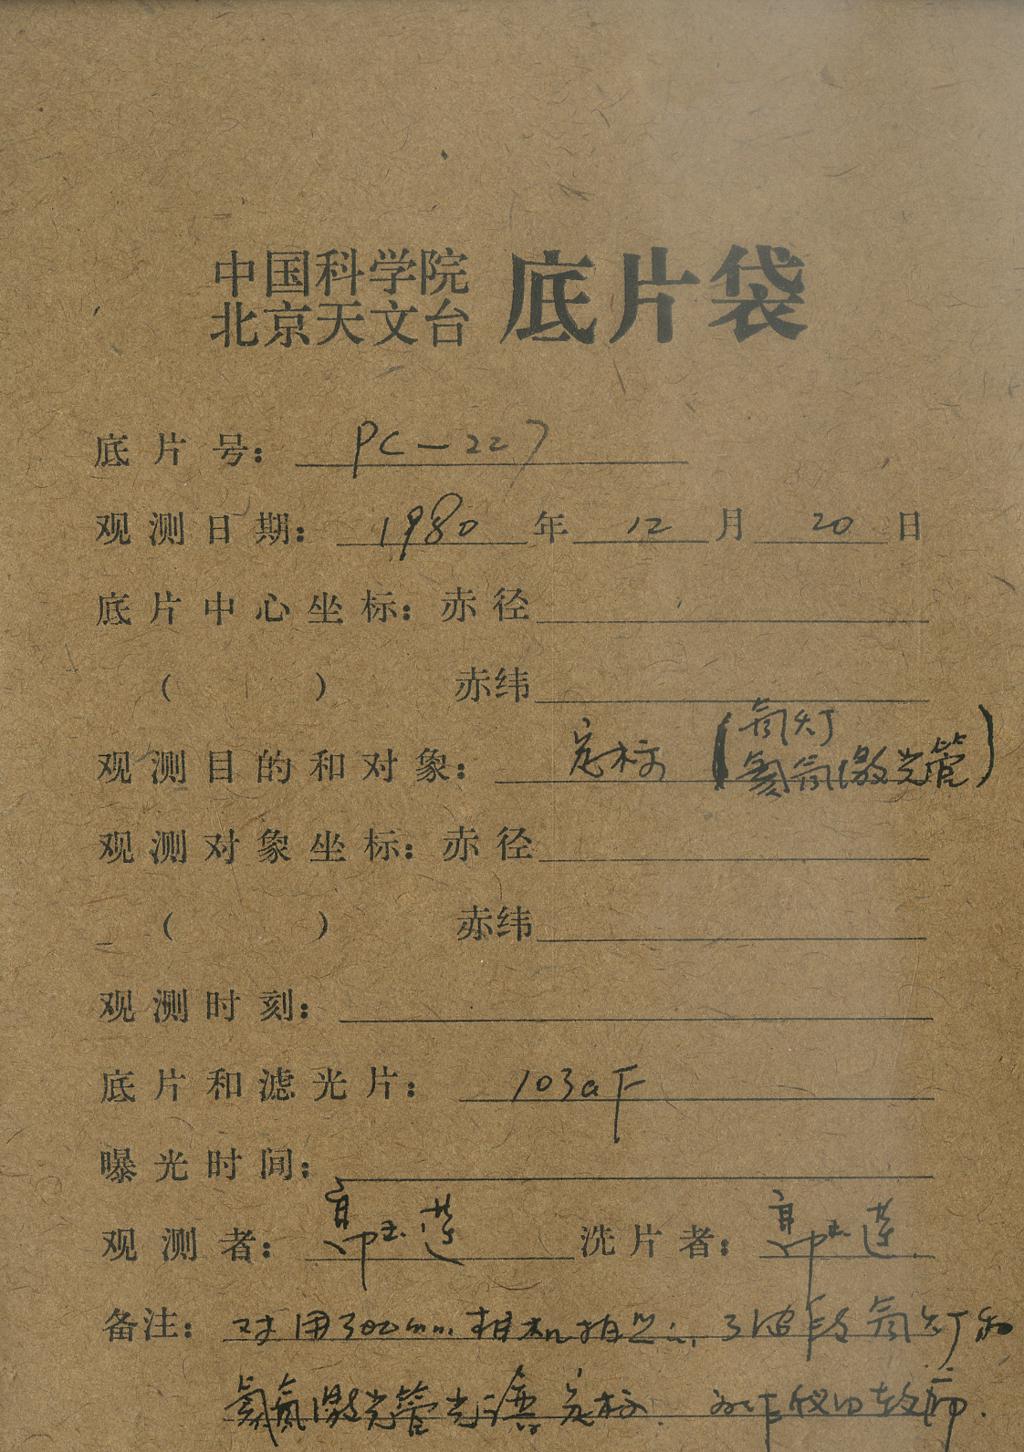 中国科学院
北京天文台 底片袋
底片号: PC-227
观测日期: 1980年12月20日
底片中心坐标: 赤径
( ) 赤纬
观测目的和对象: 定标 (氖灯
氦氖激光管)
观测对象坐标: 赤径
( ) 赤纬
观测时刻:
底片和滤光片: 103aF
曝光时间:
观测者: 郭玉莲 洗片者: 郭玉莲
备注: 对用300mm相机拍 波段氖灯和
氦氖激光管光谱定标.